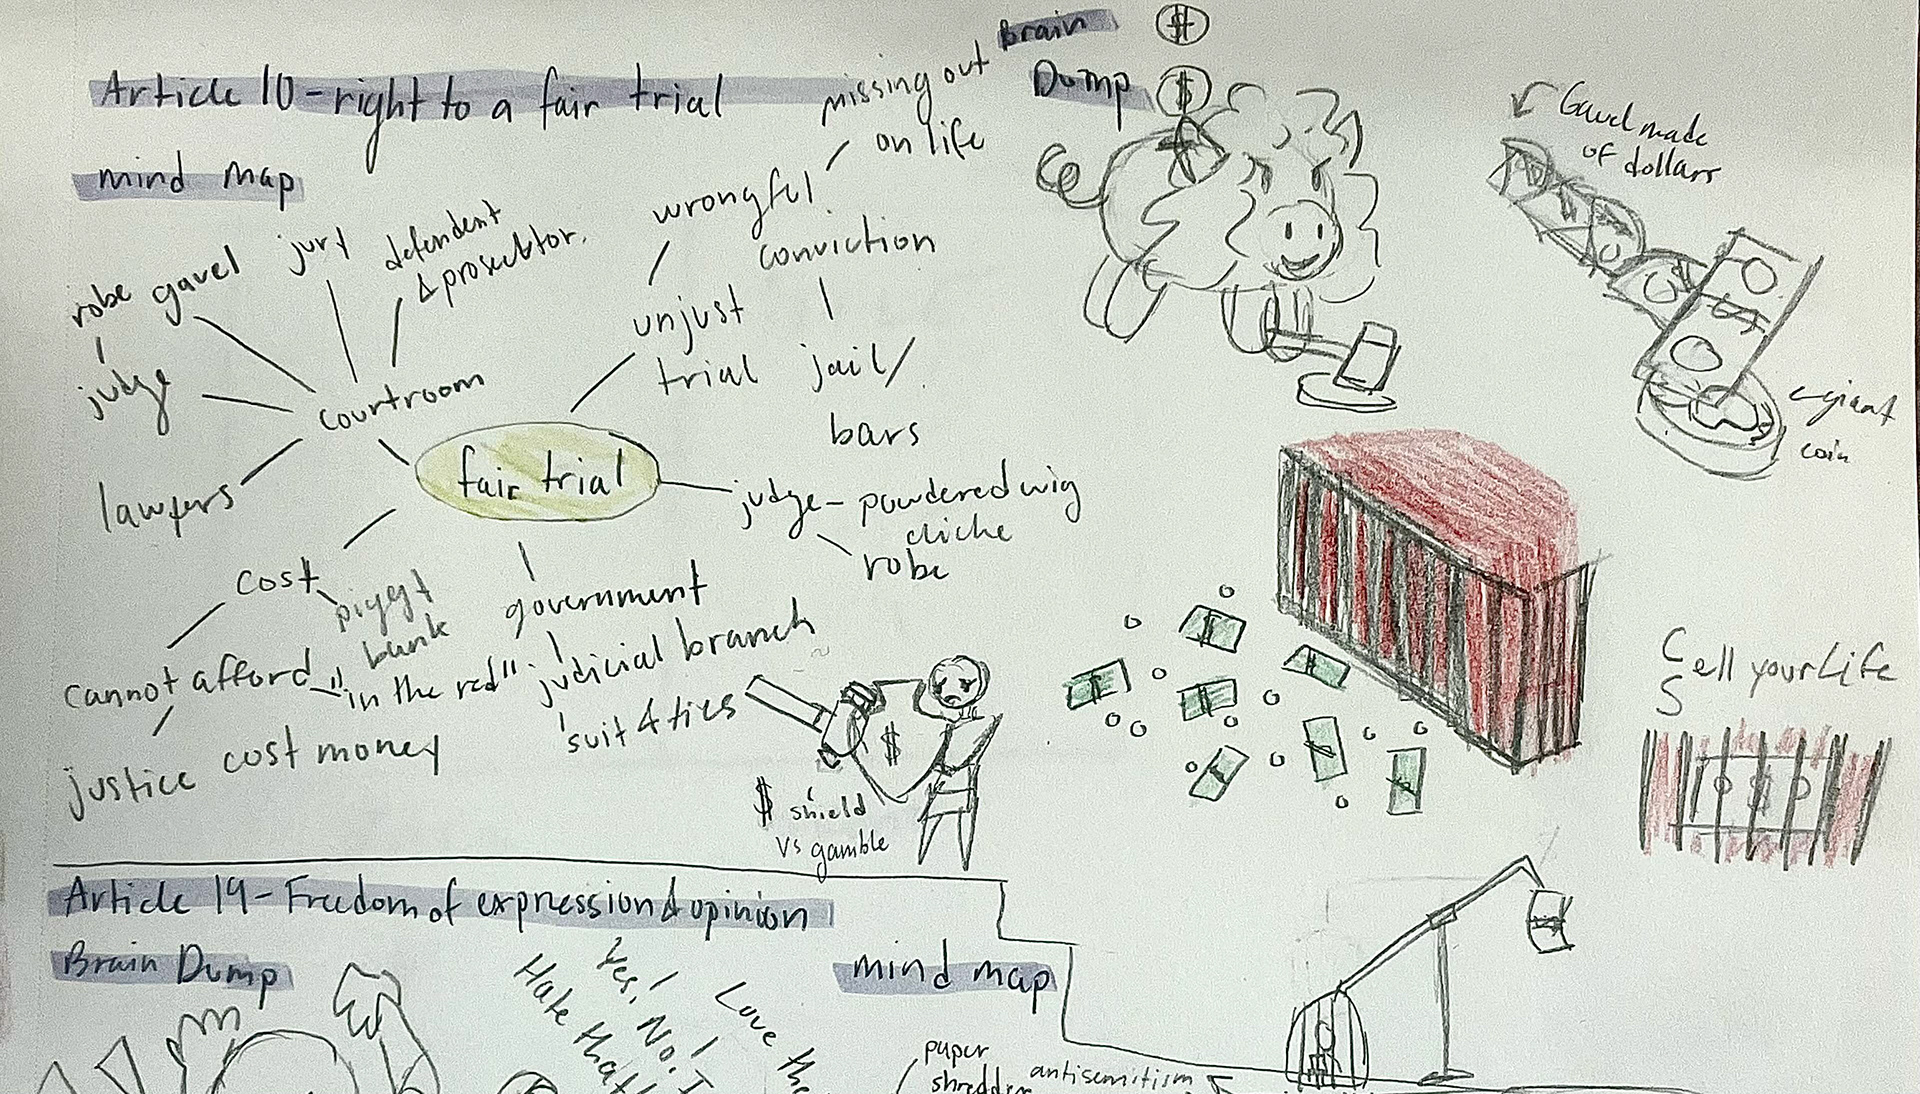 Article 10-right to a fair trial
mind map
missing out
on life
wrongful
conviction
unjust
trial
jail/
bars
robe
gavel
jury
defendent
& prosecutor.
judge
courtroom
lawyers
fair trial
judge - powdered wig
cliche
robe
cost
piggy
bank
cannot afford - "in the red"
justice cost money
government
judicial branch
suit & ties
Brain
Dump
$
$
Gavel made
of dollars
giant
coin
$
$ shield
vs gamble
C
S
ell your Life
Article 19 - Freedom of expression & opinion
Brain Dump
Yes!
No!
I
Hate that!
Love the
mind map
paper
shredder
antisemitism